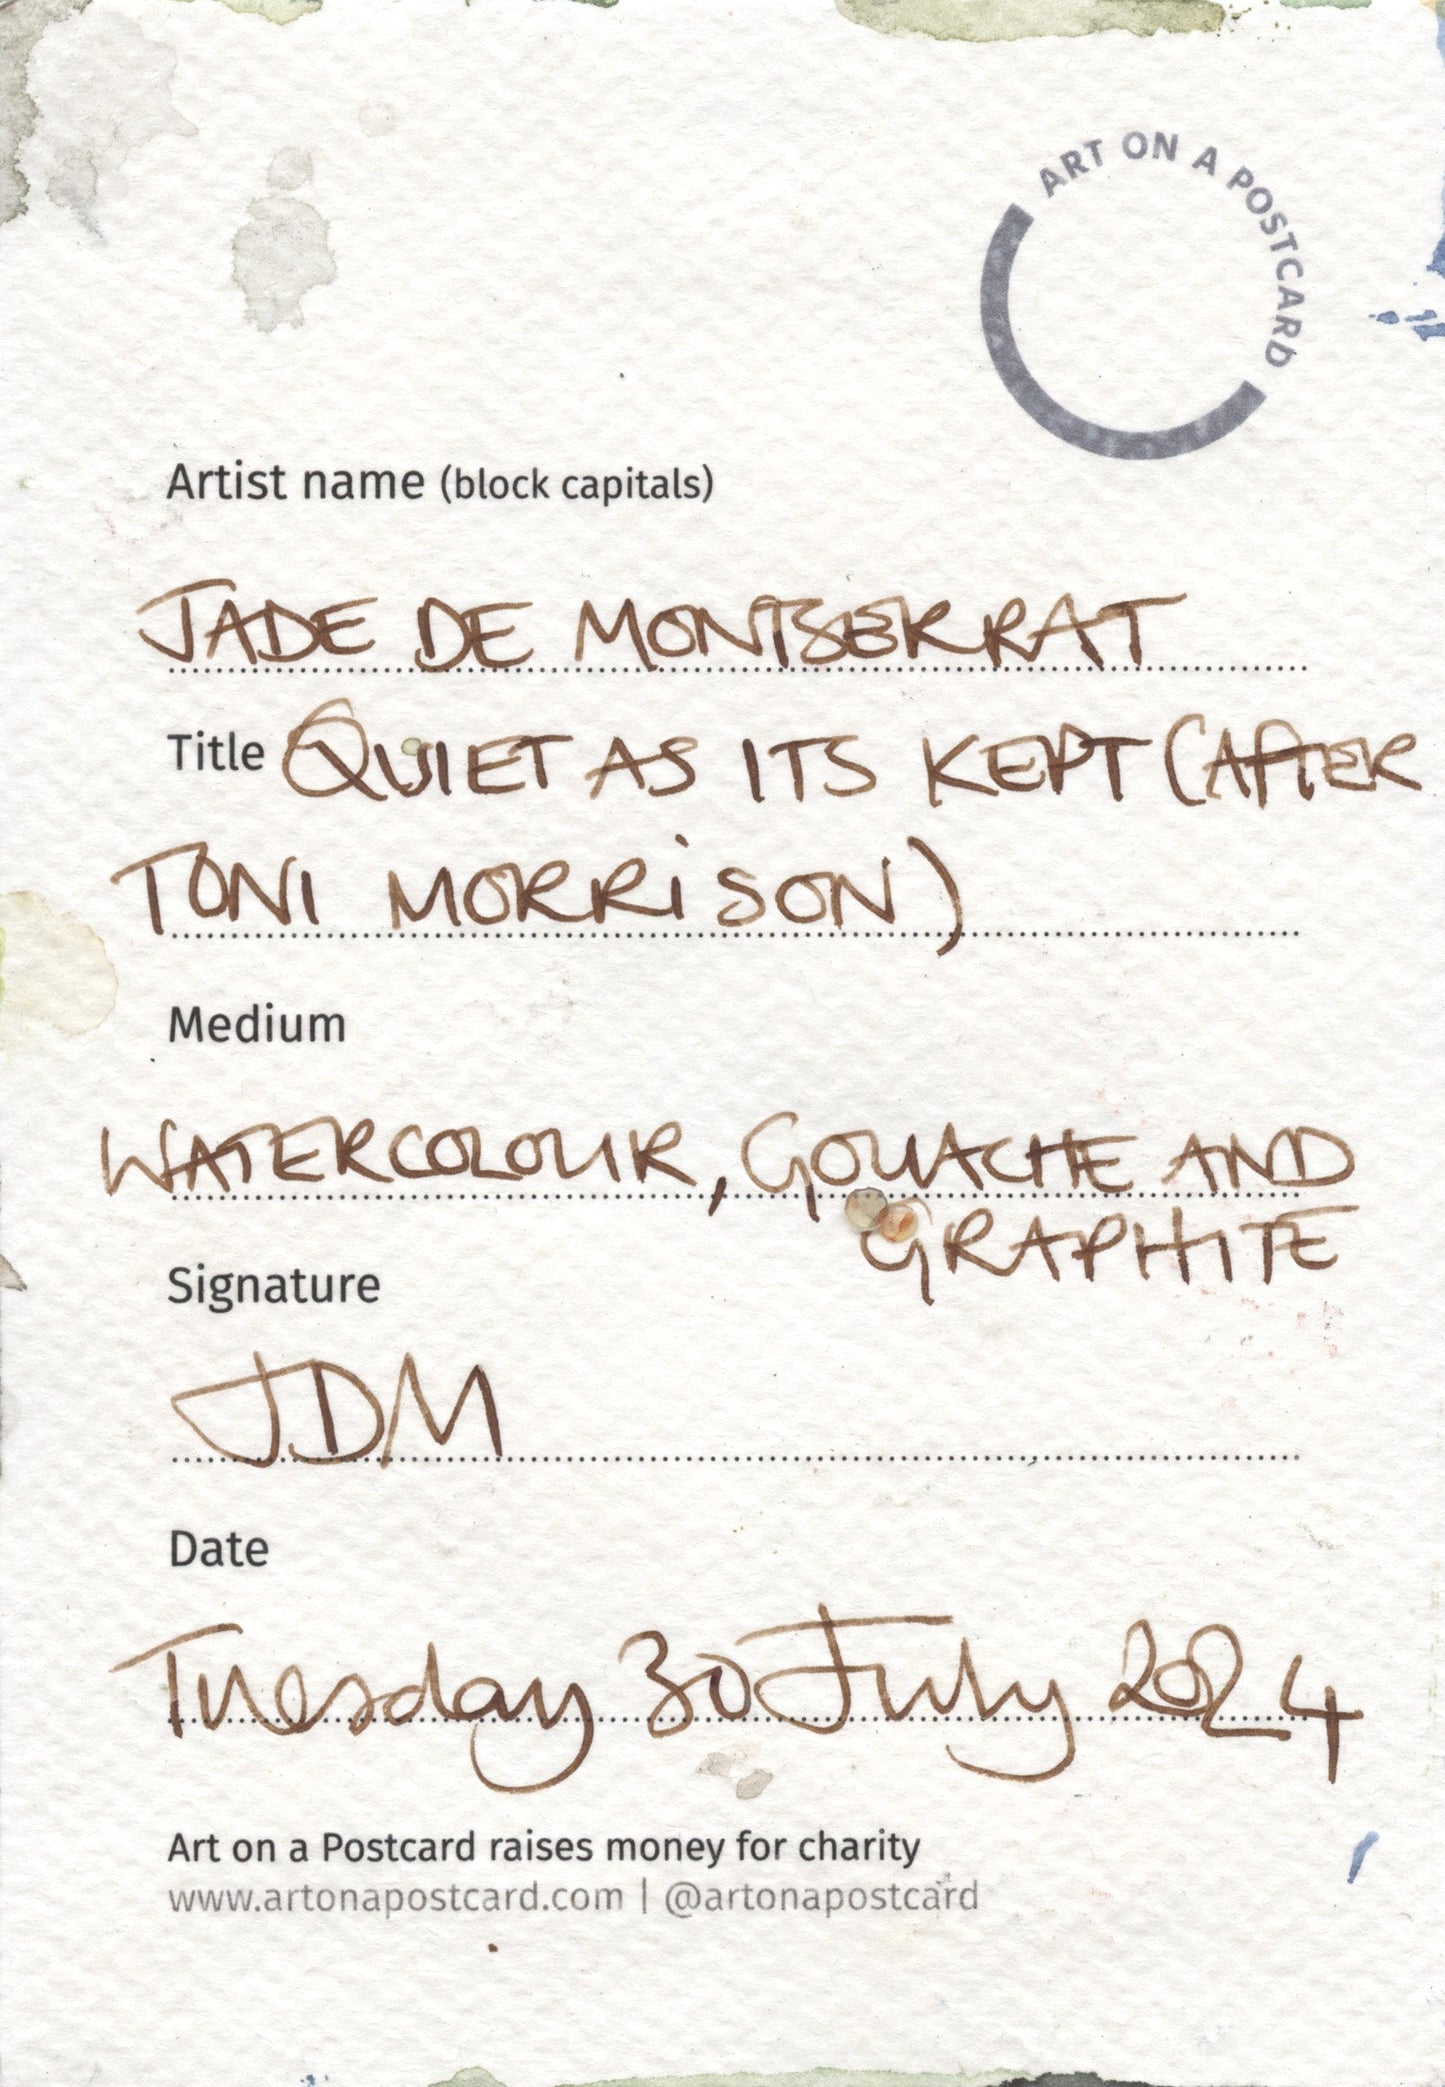 ART ON A POSTCARD
Artist name (block capitals)
JADE DE MONTSERRAT
Title QUIET AS ITS KEPT (AFTER
TONI MORRISON)
Medium
WATERCOLOUR, GOUACHE AND
GRAPHITE
Signature
JDM
Date
Tuesday 30 July 2024
Art on a Postcard raises money for charity
www.artonapostcard.com | @artonapostcard